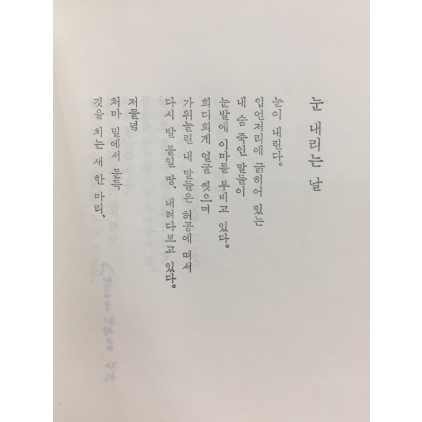 눈 내리는 날
눈이 내린다.
입언저리에 긁히어 있는
내 숨 죽인 말들이
눈발에 이마를 부비고 있다.
희디희게 얼굴 씻으며
가위눌린 내 말들은 허공에 떠서
다시 발 붙일 땅, 내려다보고 있다.
저물녘
처마 밑에서 푸득
깃을 치는 새 한 마리,